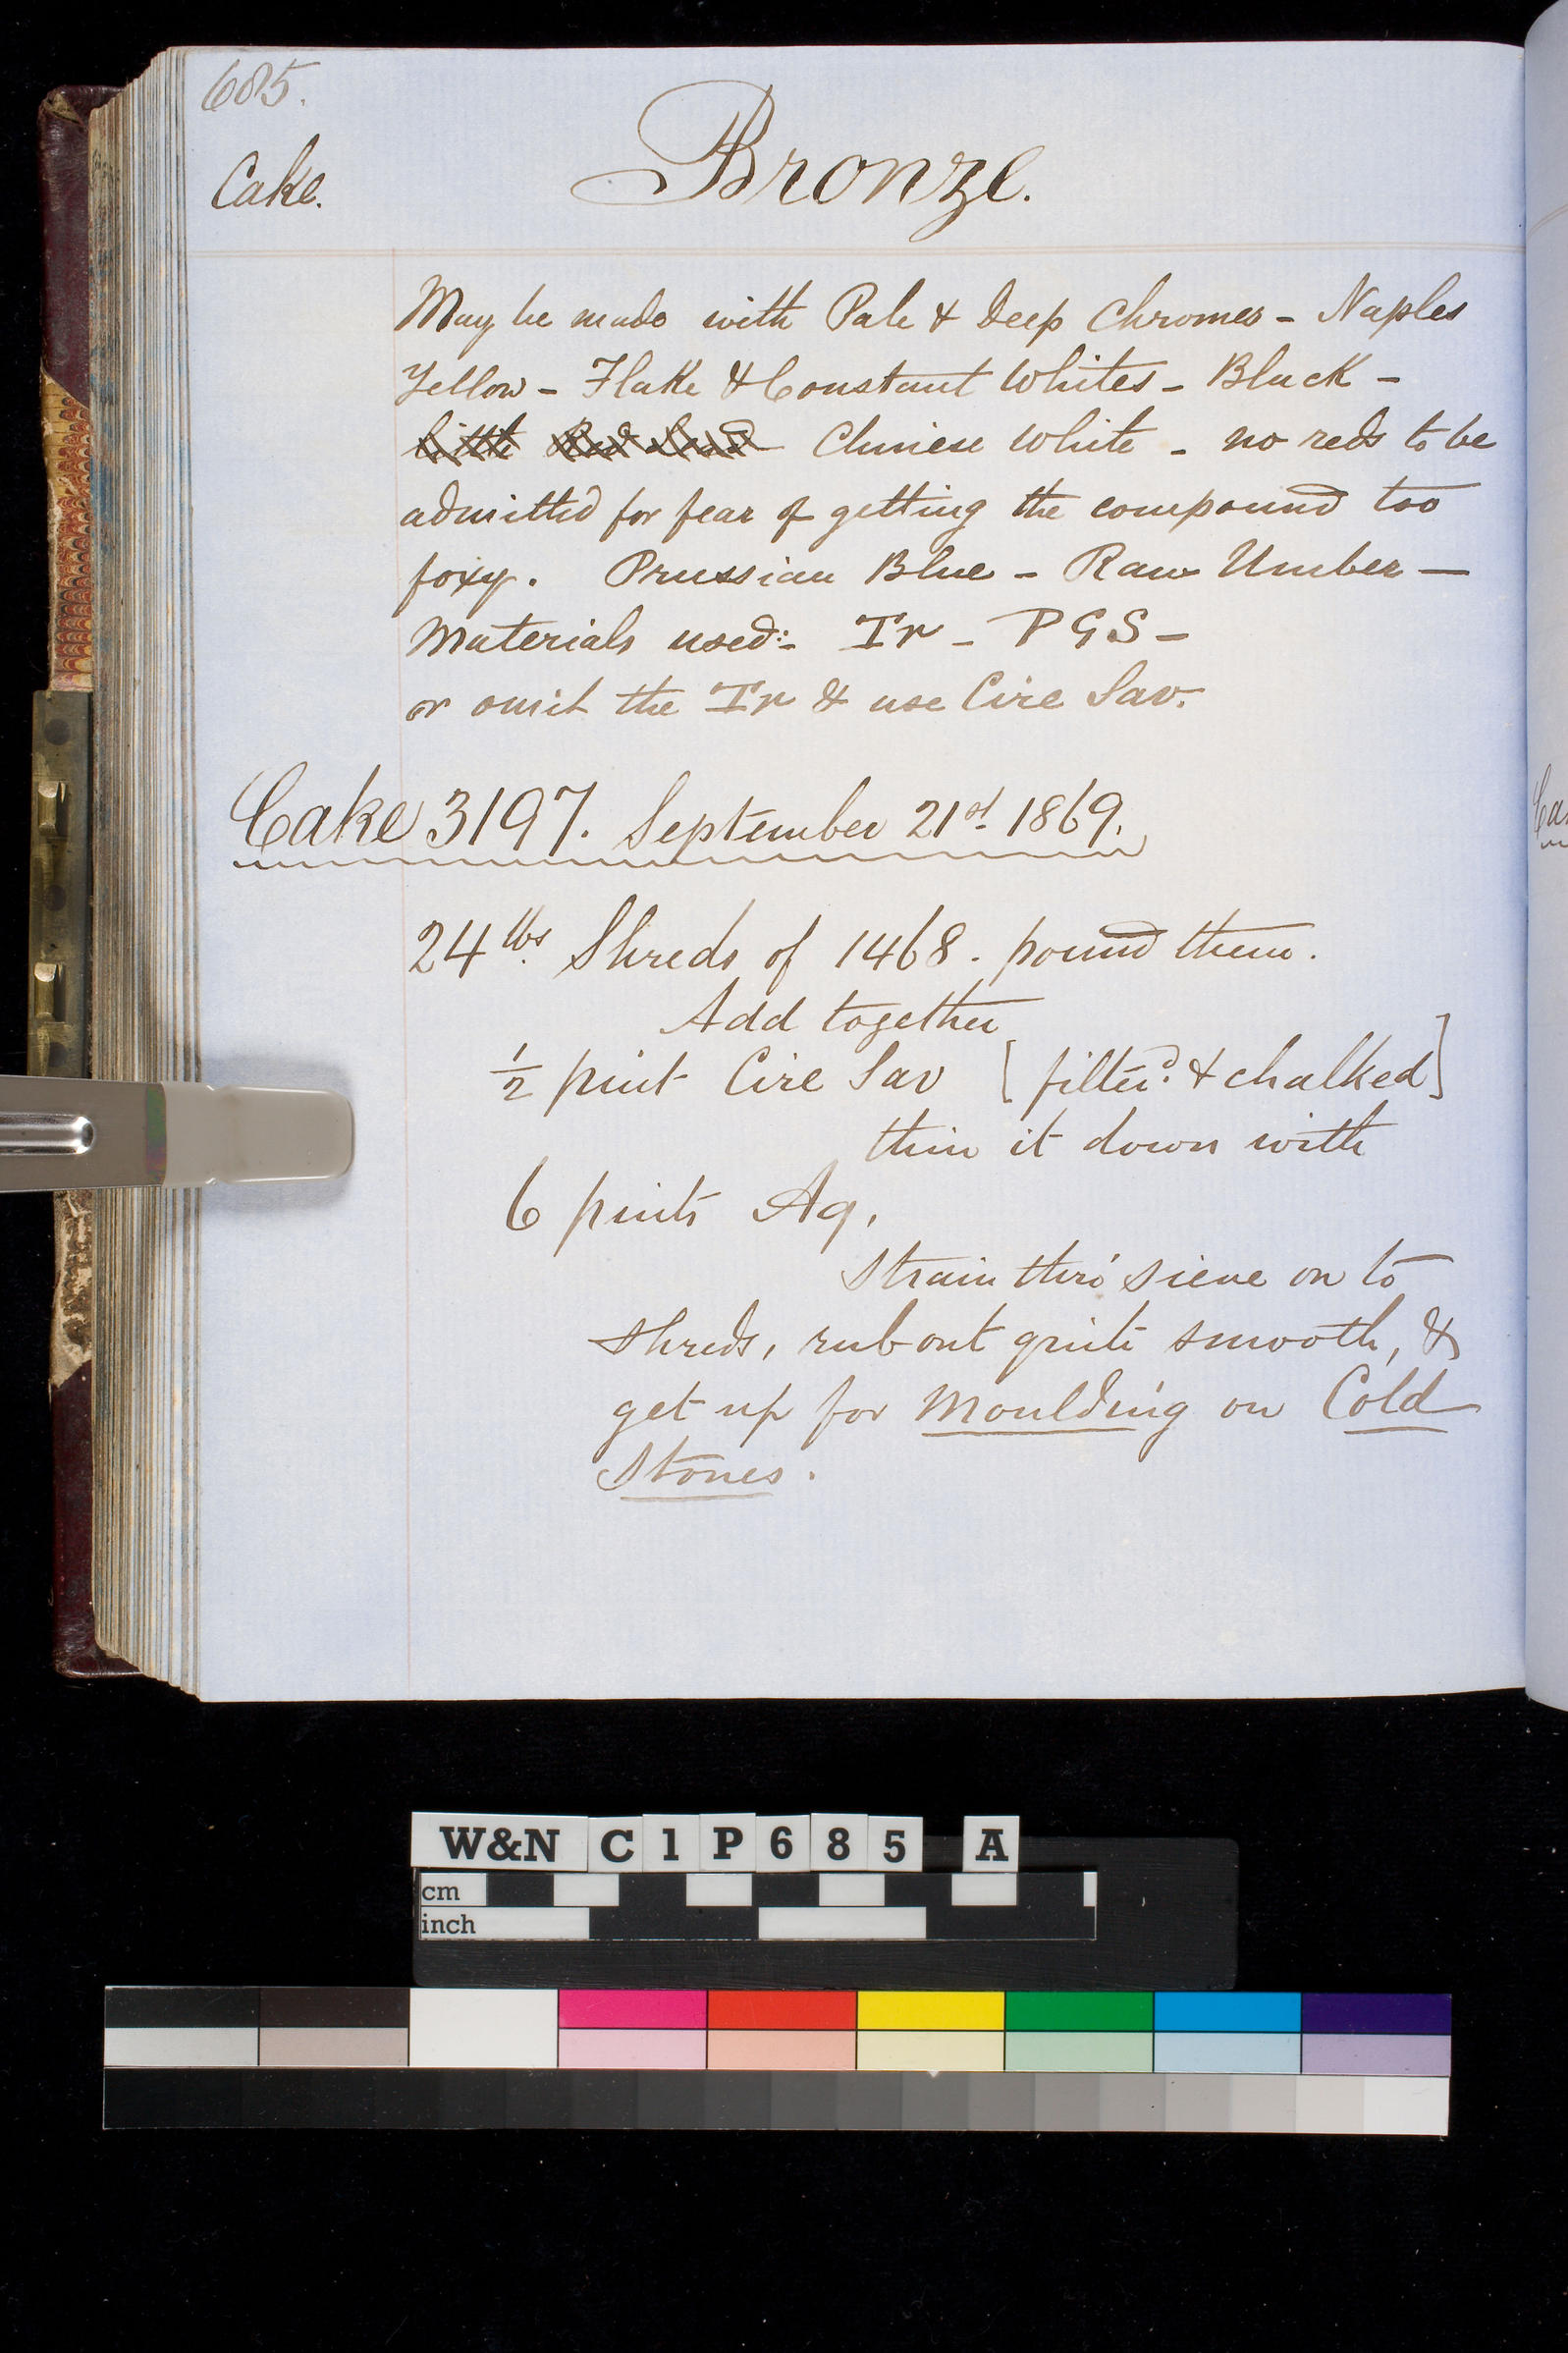 685.
Cake.
Bronze.
May be made with Pale & deep Chromes - Naples
Yellow - Flake & Constant Whites - Black -
little Red Lead Chinese White - no reds to be
admitted for fear of getting the compound too
foxy. Prussian Blue - Raw Umber -
Materials used:- Tr - P G S -
or omit the Tr & use Cire Sav.
Cake 3197. September 21st 1869.
24 lbs Shreds of 1468. pound them.
Add together
½ pint Cire Sav [filterd. & chalked]
thin it down with
6 pints Aq.
Strain thro' sieve on to
shreds, rub out quite smooth, &
get up for Moulding on Cold
Stones.
W&N C1P685 A
cm
inch